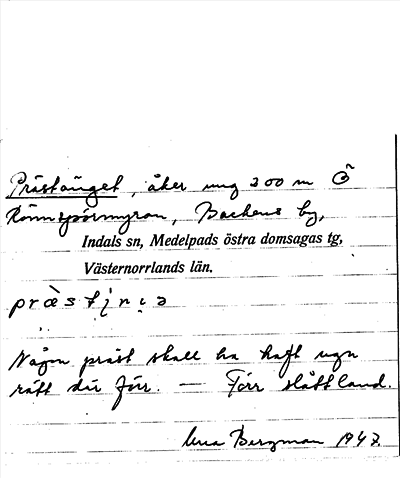 Prästänget, åker ung 300 m Ö
Rönnspörrmyran, Backens by,
Indals sn, Medelpads östra domsagas tg,
Västernorrlands län.
Någon präst skall ha haft
rätt där förr. — Förr slåttland.
Bergman 1947.